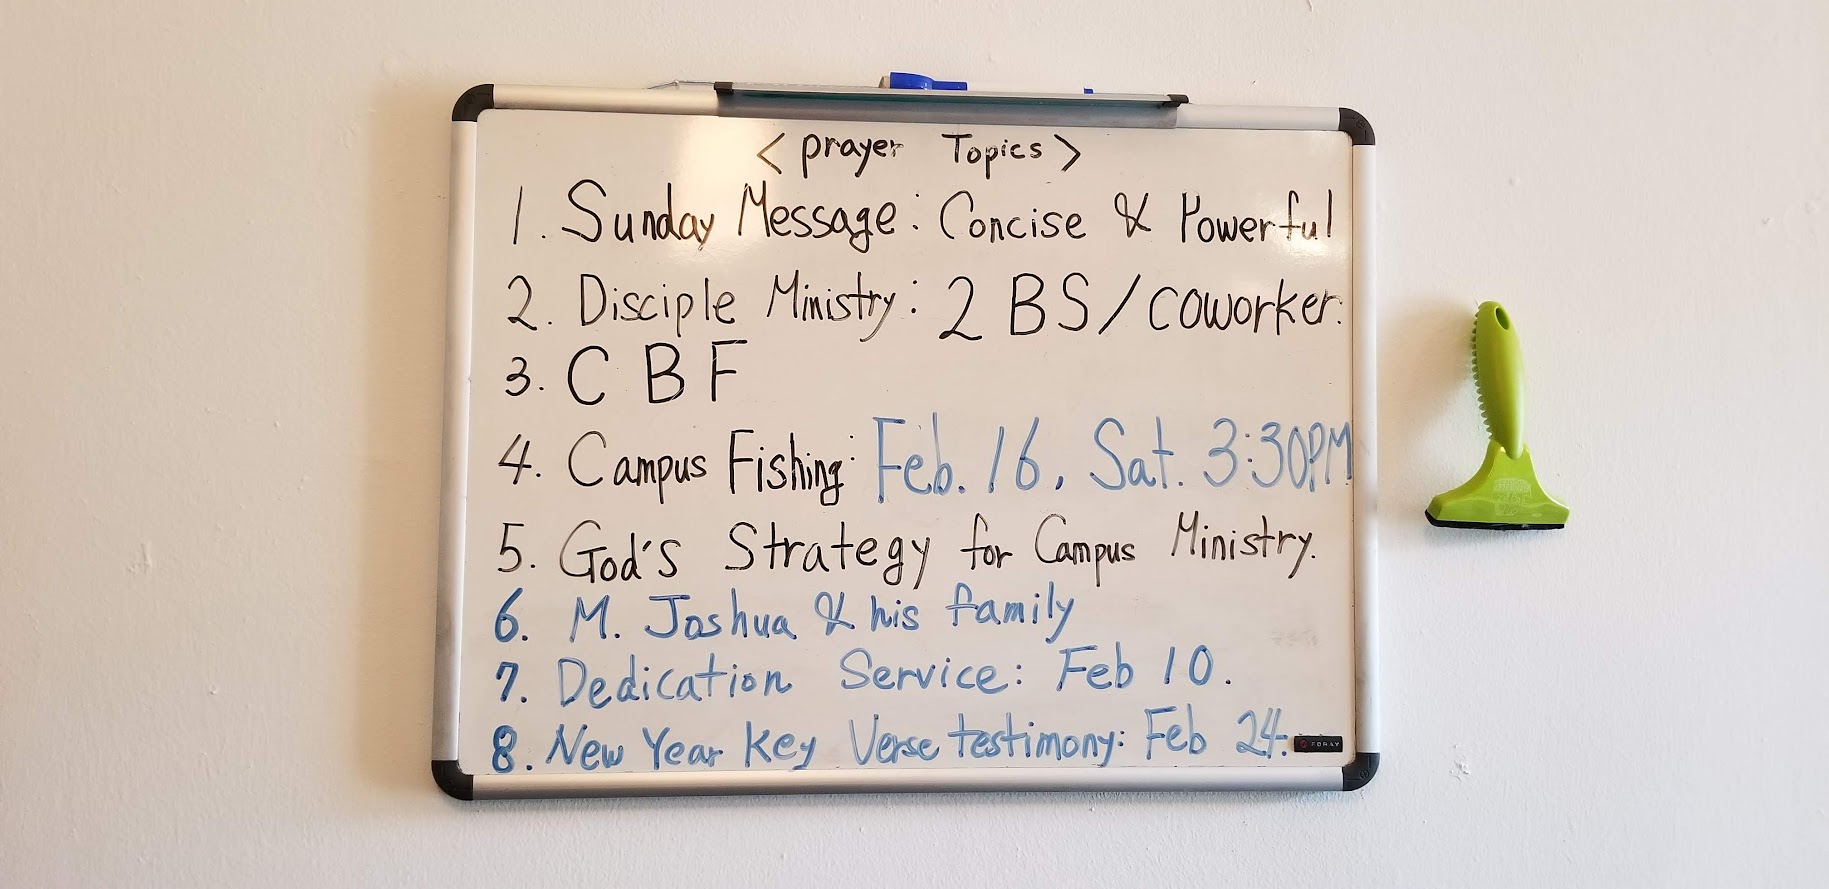 < prayer Topics >
1. Sunday Message: Concise & Powerful
2. Disciple Ministry: 2 BS/coworker.
3. CBF
4. Campus Fishing: Feb. 16, Sat. 3:30PM
5. God's Strategy for Campus Ministry.
6. M. Joshua & his family
7. Dedication Service: Feb 10.
8. New Year Key Verse testimony: Feb 24.
FORAY